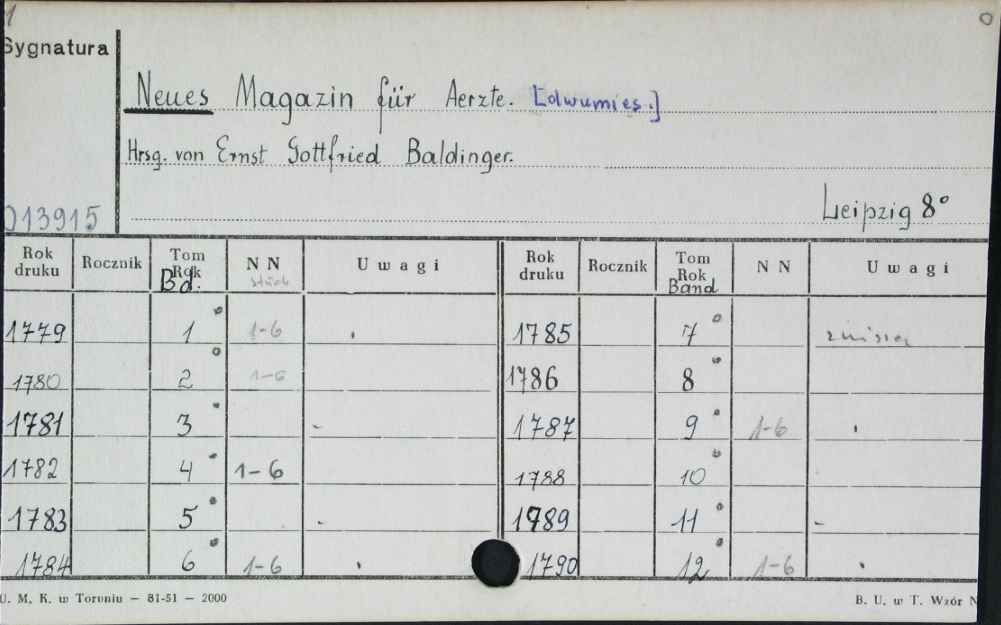 1
Sygnatura
Neues Magazin für Aerzte. [dwumies.]
Hrsg. von Ernst Gottfried Baldinger.
013915
Leipzig 8°
Rok druku Rocznik Tom Rok Bd. NN stück Uwagi Rok druku Rocznik Tom Rok Band NN Uwagi
1779 1 1-6 1785 7
1780 2 1-6 1786 8
1781 3 1787 9 1-6
1782 4 1-6 1788 10
1783 5 1789 11
1784 6 1-6 1790 12 1-6
U. M. K. w Toruniu — 81-51 — 2000
B. U. w T. Wzór N